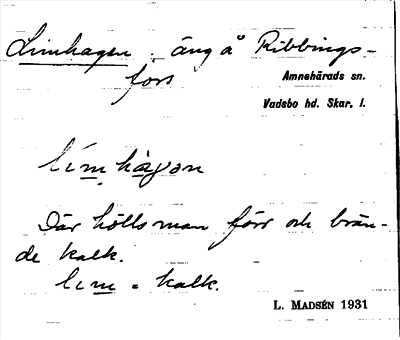 Limhagen. äng å Ribbings-
fors
Amnehärads sn.
Vadsbo hd. Skar. l.
lím hàgon
Där hölls man förr och brän-
de kalk.
lim = kalk.
L. MADSÉN 1931